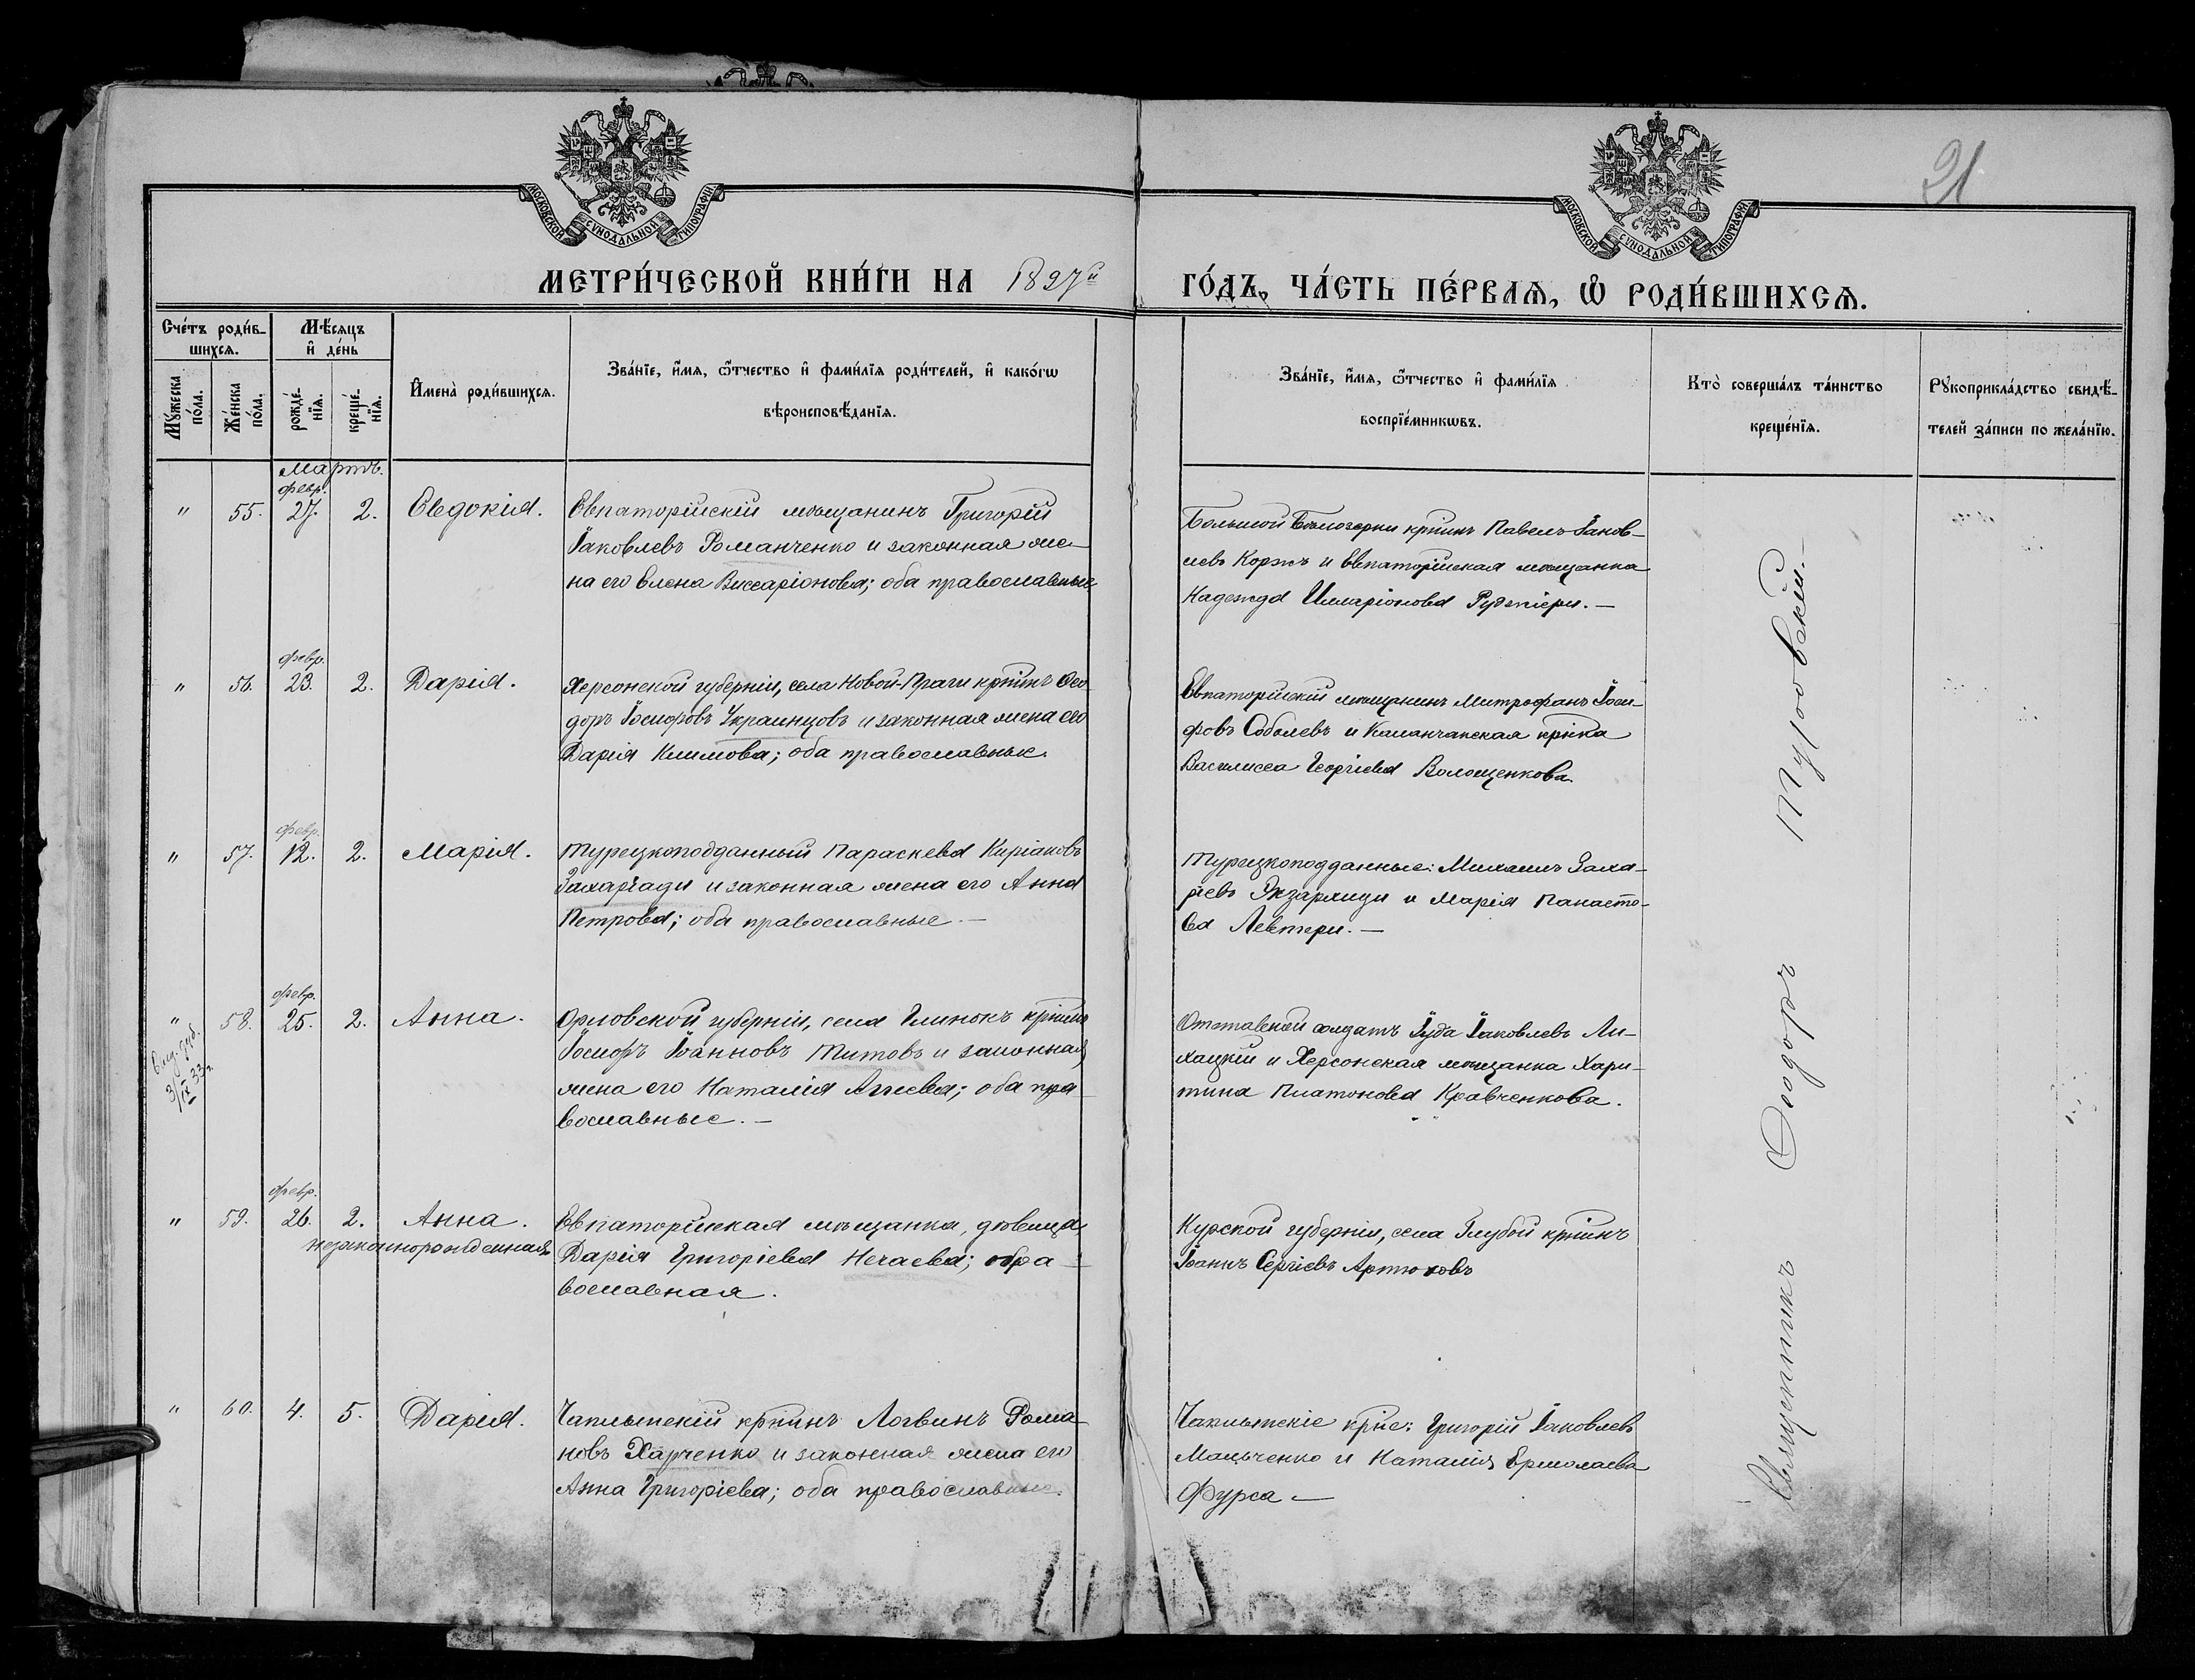 21
МОСКОВСКОЙ СѴНОДАЛЬНОЙ ТИПОГРАФІИ
МОСКОВСКОЙ СѴНОДАЛЬНОЙ ТИПОГРАФІИ
МЕТРИ́ЧЕСКОЙ КНИ́ГИ НА 1897й ГО́ДЪ, ЧА́СТЬ ПЕ́РВАѦ, Ѡ҆ РОДИ́ВШИХСѦ.
Сче́тъ роди́в-
шихсѧ.
Мѣ́сѧцъ
и҆ де́нь
Мꙋ́жеска
по́ла.
Же́нска
по́ла.
рожде́-
нїѧ.
креще́-
нїѧ.
И҆мена̀ роди́вшихсѧ.
Зва́нїе, и҆́мѧ, ѻ҆́тчество и҆ фами́лїѧ роди́телей, и҆ како́гѡ
вѣроисповѣ́данїѧ.
Зва́нїе, и҆́мѧ, ѻ҆́тчество и҆ фами́лїѧ
воспрїе́мникѡвъ.
Кто̀ соверша́лъ та́инство
креще́нїѧ.
Рꙋкоприкла́дство свидѣ́-
телей за́писи по жела́нїю.
Мартъ.
февр.
" 55. 27. 2. Евдокія. Евпаторійскій мѣщанинъ Григорій
Іаковлевъ Романченко и законная же-
на его Елена Виссаріонова; оба православные
Большой Бѣлозерки крн҃инъ Павелъ Іаков-
левъ Коржъ и Евпаторійская мѣщанка
Надежда Илларіонова Рудзтери. —
февр.
" 56. 23. 2. Дарія. Херсонской губерніи, села Новой-Праги крн҃инъ Ѳео-
доръ Іосифовъ Украинцовъ и законная жена его
Дарія Климова; оба православные.
Евпаторійскій мѣщанинъ Митрофанъ Іоси-
фовъ Соболевъ и Каланчакская крн҃ка
Василисса Георгіева Волощенкова.
февр.
" 57. 12. 2. Марія. Турецкоподданный Параскева Киріаковъ
Захаріади и законная жена его Анна
Петрова; оба православные. —
Турецкоподданные: Михаилъ Заха-
ріевъ Экзарлиди и Марія Панаето-
ва Левтери. —
февр.
" 58. 25. 2. Анна. Орловской губерніи, села Глинокъ крн҃инъ
Іосифъ Іоанновъ Титовъ и законная
жена его Наталія Аггеева; оба пра-
вославные. —
Выд. дуб.
3/IX 33г.
Отставной солдатъ Іуда Іаковлевъ Ли-
хацкій и Херсонская мѣщанка Хари-
тина Платонова Кравченкова.
февр.
" 59. 26. 2. Анна. Евпаторійская мѣщанка, дѣвица
незаконнорожденная Дарія Григоріева Нечаева; пра-
вославная.
Курской губерніи, села Глубой крн҃инъ
Іоаннъ Сергіевъ Артюховъ
" 60. 4. 5. Дарія. Чаплынскій крн҃инъ Логвинъ Рома-
новъ Харченко и законная жена его
Анна Григоріева; оба православные.
Чаплынскіе крн҃е: Григорій Іаковлевъ
Мальченко и Наталія Ермолаева
Фурса —
Священникъ Ѳеодоръ Туровскій. —